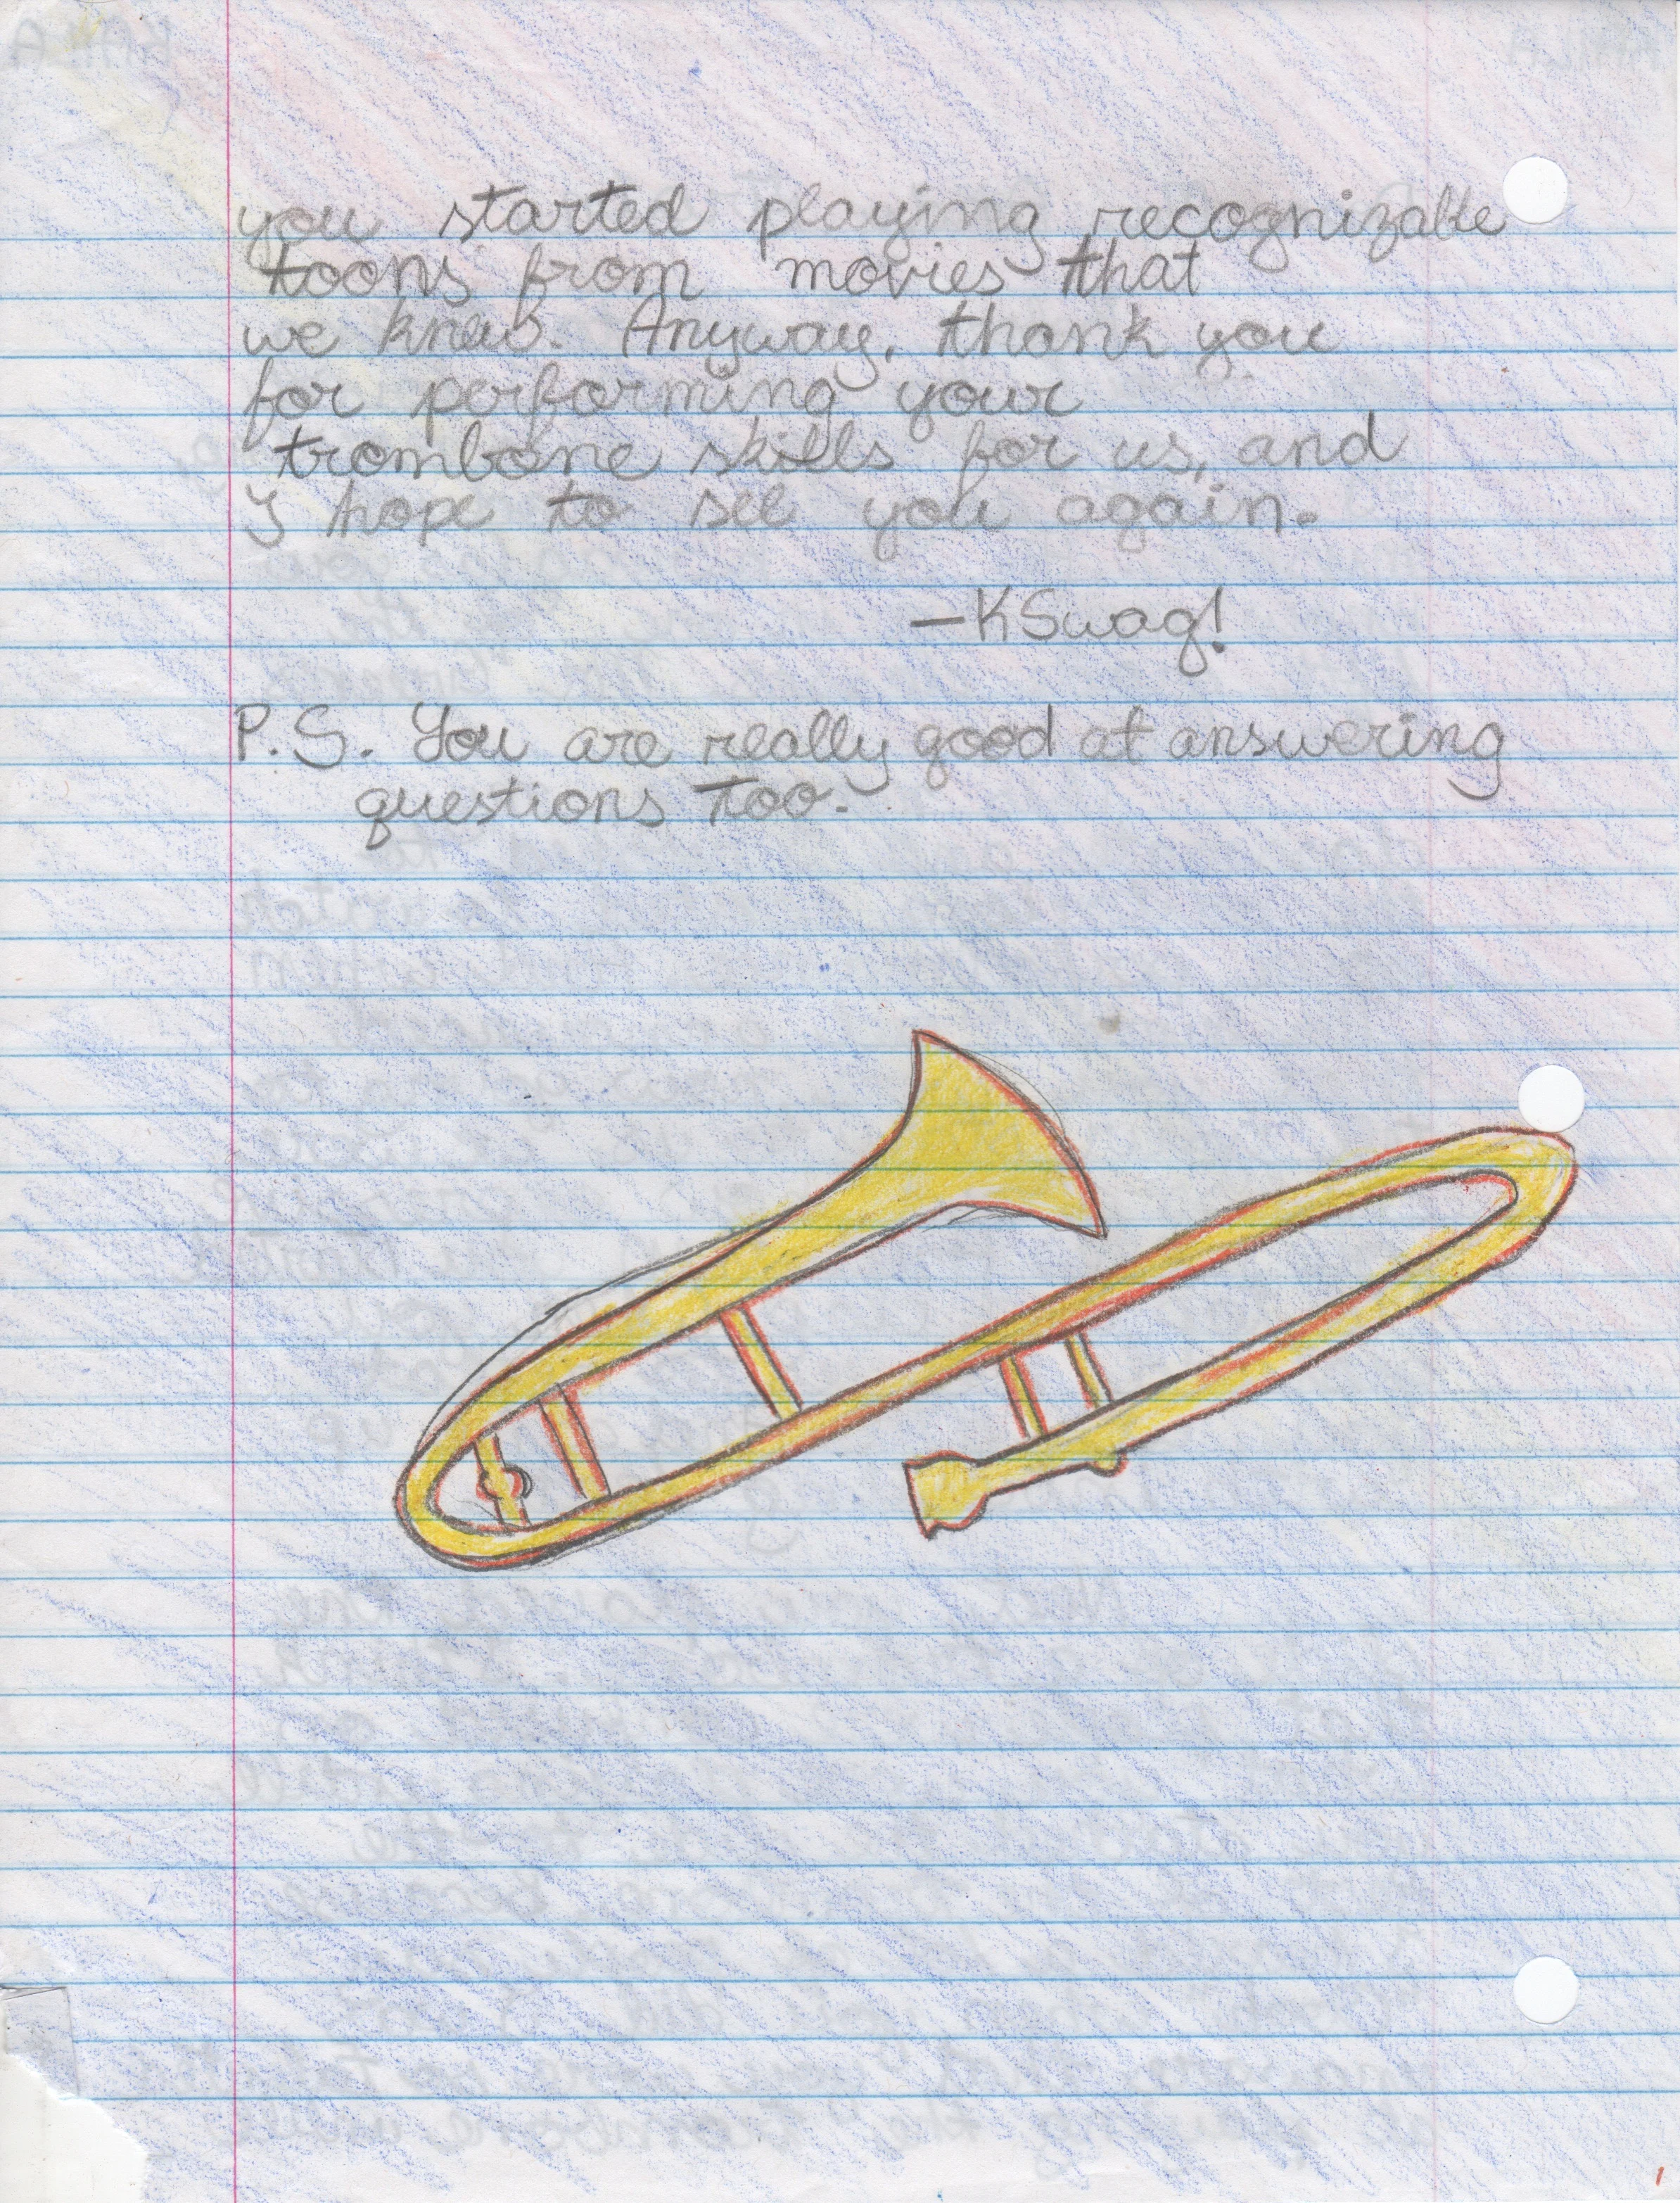 you started playing recognizable
toons from movies that
we knew. Anyway, thank you
for performing your
trombone skills for us, and
I hope to see you again.
—KSwag!
P.S. You are really good at answering
questions too.